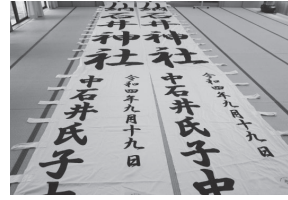 石井神社
令和四年九月十九日
中石井氏子中
石井神社
令和四年九月十九日
中石井氏子